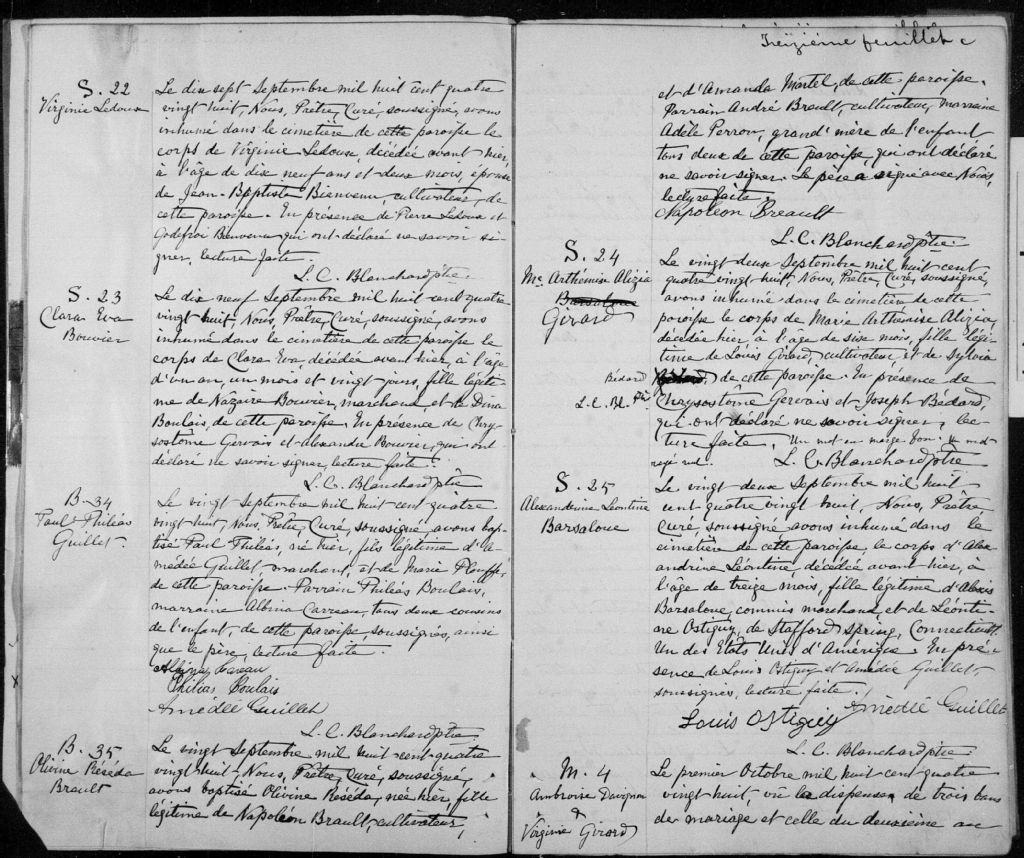 S. 22
Virginie Ledoux
Le dix sept Septembre mil huit cent quatre
vingt huit, Nous, Prêtre, Curé, soussigné, avons
inhumé dans le cimetière de cette paroisse le
corps de Virginie Ledoux, décédée avant hier,
à l'âge de dix neuf ans et deux mois, épouse
de Jean-Baptiste Bienvenu, cultivateur, de
cette paroisse. En présence de Pierre Ledoux et
Godefroi Bienvenu qui ont déclaré ne savoir si-
gner, lecture faite.
L. C. Blanchard ptre.
S. 23
Clara Eva
Bouvier
Le dix neuf Septembre mil huit cent quatre
vingt huit, Nous, Prêtre, Curé, soussigné, avons
inhumé dans le cimetière de cette paroisse le
corps de Clara Eva, décédée avant hier, à l'âge
d'un an, un mois et vingt jours, fille légiti-
me de Nazaire Bouvier, marchand, et de Dina
Boulais, de cette paroisse. En présence de Chry-
sostôme Gervais et Alexandre Bouvier, qui ont
déclaré ne savoir signer, lecture faite.
L. C. Blanchard ptre
B. 34
Paul Philéas
Guillet.
Le vingt Septembre mil huit cent quatre
vingt huit, Nous, Prêtre, Curé, soussigné avons bap-
tisé Paul Philéas, né hier, fils légitime d'A-
médée Guillet marchand, et de Marie Plouffe,
de cette paroisse. Parrain Philéas Boulais,
marraine Albina Carreau, tous deux cousins
de l'enfant, de cette paroisse soussignés, ainsi
que le père, lecture faite.
Albina Careau
Philias Boulais
Amédée Guillet
L. C. Blanchard ptre
B. 35
Olivine Réséda
Brault
Le vingt Septembre mil huit cent quatre
vingt huit, Nous, Prêtre, Curé, soussigné,
avons baptisé Olivine Réséda, née hier, fille
légitime de Napoléon Brault, cultivateur,
Treizième feuillet
et d'Amanda Martel, de cette paroisse.
Parrain André Breault, cultivateur, marraine
Adèle Perron, grand'mère de l'enfant
tous deux de cette paroisse qui ont déclaré
ne savoir signer. Le père a signé avec Nous,
lecture faite.
Napoléon Breault
L. C. Blanchard ptre.
S. 24
Me. Arthémise Alizia
Barsalou
Girard
Le vingt deux Septembre mil huit cent
quatre vingt huit, Nous, Prêtre, Curé, soussigné,
avons inhumé dans le cimetière de cette
paroisse le corps de Marie Arthémise Alizia,
décédée hier à l'âge de six mois, fille légi-
time de Louis Girard, cultivateur et de Sylvia
Bédard
L. C. Bl. ptre
de cette paroisse. En présence de
Chrysostôme Gervais et Joseph Bédard,
qui ont déclaré ne savoir signer, lec-
ture faite. Un mot en marge bon. Un mot
rayé nul.
L. C. Blanchard ptre
S. 25
Alexandrine Léontine
Barsaloue
Le vingt deux Septembre mil huit
cent quatre vingt huit, Nous, Prêtre,
Curé, soussigné avons inhumé dans le
cimetière de cette paroisse, le corps d'Alex-
andrine Léontine, décédée avant hier, à
l'âge de treize mois, fille légitime d'Alexis
Barsaloue, commis marchand et de Léonti-
ne Ostiguy, de Stafford Spring, Connecticut,
Un des Etats Unis d'Amérique. En pré-
sence de Louis Ostiguy et Amédée Guillet,
soussignés, lecture faite.
Amédée Guillet
Louis Ostiguy
L. C. Blanchard ptre.
M. 4
Ambroise Davignon
&
Virginie Girard
Le premier Octobre mil huit cent quatre
vingt huit, vû la dispense de trois bans
de mariage et celle du deuxième au